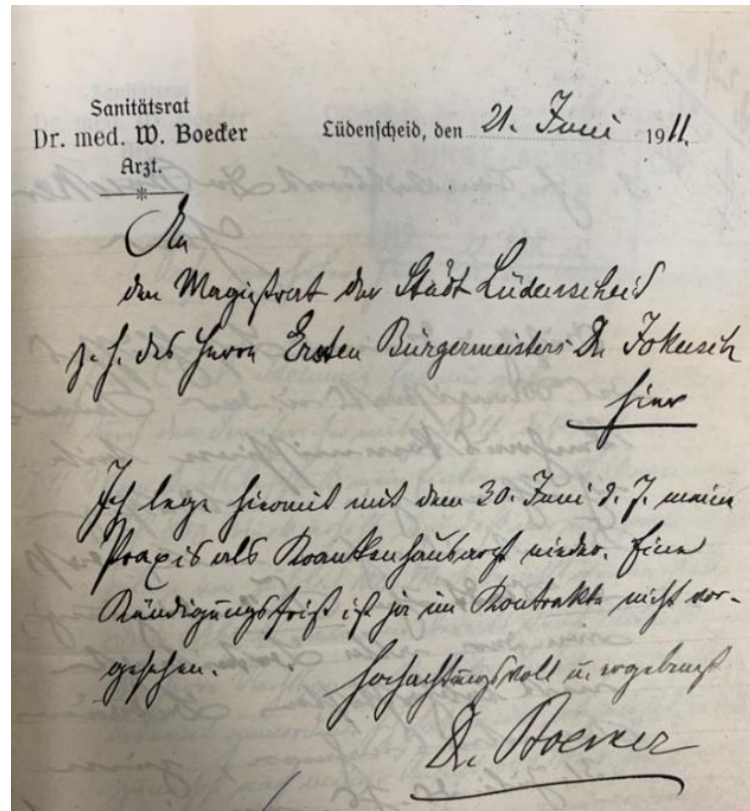 Sanitätsrat
Dr. med. W. Boecker
Arzt.
Lüdenscheid, den 21. Juni 1911.
An
den Magistrat der Stadt Lüdenscheid
z. H. des Herrn Ersten Bürgermeisters Dr. Jokusch
hier
Ich lege hiermit mit dem 30. Juni d. J. meine
Praxis als Krankenhausarzt nieder. Eine
Kündigungsfrist ist ja im Kontrakte nicht vor-
gesehen.
Hochachtungsvoll u. ergebenst
Dr. Boecker